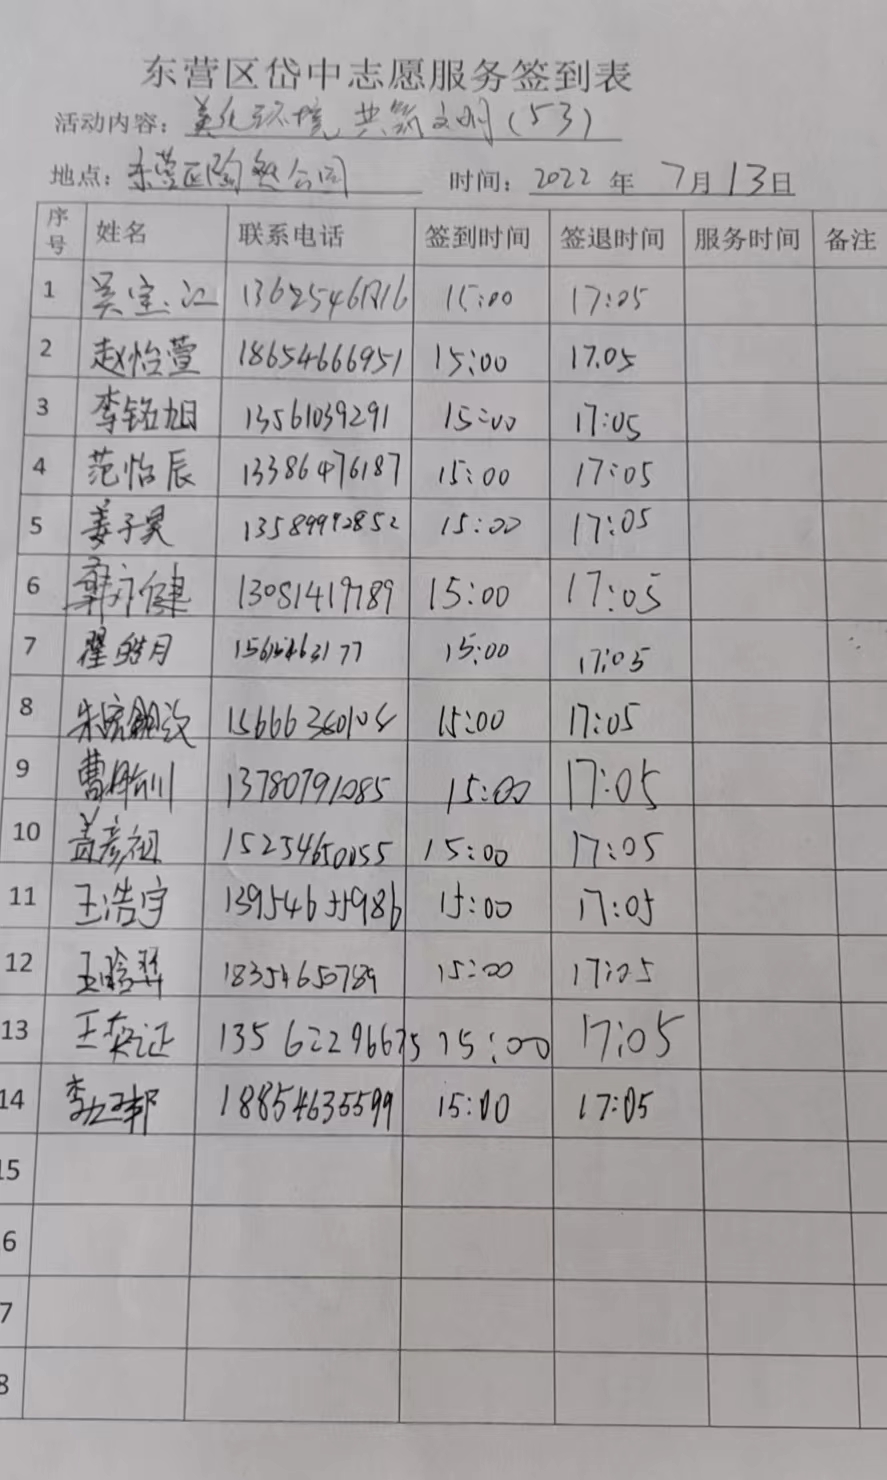 东营区岱中志愿服务签到表
活动内容: 美化环境 共筑文明(53)
地点: 东营区 公园 时间: 2022 年 7月13日
序号 姓名 联系电话 签到时间 签退时间 服务时间 备注
1 15:00 17:05
2 赵怡萱 18654666951 15:00 17.05
3 李铭旭 13561039291 15:00 17:05
4 范怡辰 13386476187 15:00 17:05
5 姜子昊 15:00 17:05
6 13081419789 15:00 17:05
7 翟皓月 15:00 17:05
8 15:00 17:05
9 曹 13780791085 15:00 17:05
10 盖彦祖 15254650055 15:00 17:05
11 王浩宇 13954655986 15:00 17:05
12 王晗羿 18354650789 15:00 17:05
13 王奕证 13562296675 15:00 17:05
14 18854635599 15:00 17:05
15
6
7
8